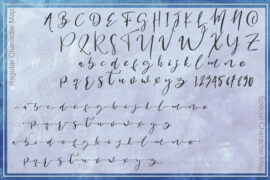 Regular Character Map
A B C D E F G H I J K L M N O
P Q R S T U V W X Y Z
a b c d e f g h i j k l m n o
p q r s t u v w x y z 1 2 3 4 5 6 7 8 9 0
a b c d e f g h i j k l m n o
p q r s t u v w x y z
a b c d e f g h i j k l m n o
p q r s t u v w x y z
Special Character Map